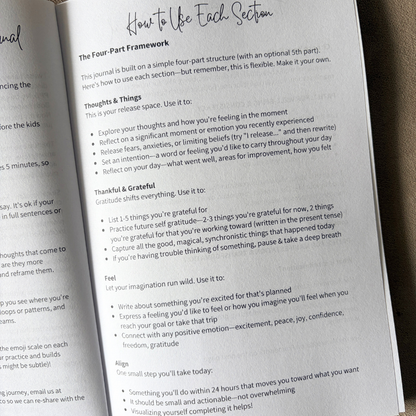 nal
ncing the
fore the kids
es 5 minutes, so
say. It's ok if your
in full sentences or
houghts that come to
are they more
nd reframe them.
p you see where you're
loops or patterns, and
eams.
the emoji scale on each
r practice and builds
s might be subtle)!
ng journey, email us at
to so we can re-share with the
How to Use Each Section
The Four-Part Framework
This journal is built on a simple four-part structure (with an optional 5th part).
Here's how to use each section—but remember, this is flexible. Make it your own.
Thoughts & Things
This is your release space. Use it to:
• Explore your thoughts and how you're feeling in the moment
• Reflect on a significant moment or emotion you recently experienced
• Release fears, anxieties, or limiting beliefs (try "I release..." and then rewrite)
• Set an intention—a word or feeling you'd like to carry throughout your day
• Reflect on your day—what went well, areas for improvement, how you felt
Thankful & Grateful
Gratitude shifts everything. Use it to:
• List 1-5 things you're grateful for
• Practice future self gratitude—2-3 things you're grateful for now, 2 things
you're grateful for that you're working toward (written in the present tense)
• Capture all the good, magical, synchronistic things that happened today
• If you're having trouble thinking of something, pause & take a deep breath
Feel
Let your imagination run wild. Use it to:
• Write about something you're excited for that's planned
• Express a feeling you'd like to feel or how you imagine you'll feel when you
reach your goal or take that trip
• Connect with any positive emotion—excitement, peace, joy, confidence,
freedom, gratitude
Align
One small step you'll take today:
• Something you'll do within 24 hours that moves you toward what you want
• It should be small and actionable—not overwhelming
• Visualizing yourself completing it helps!